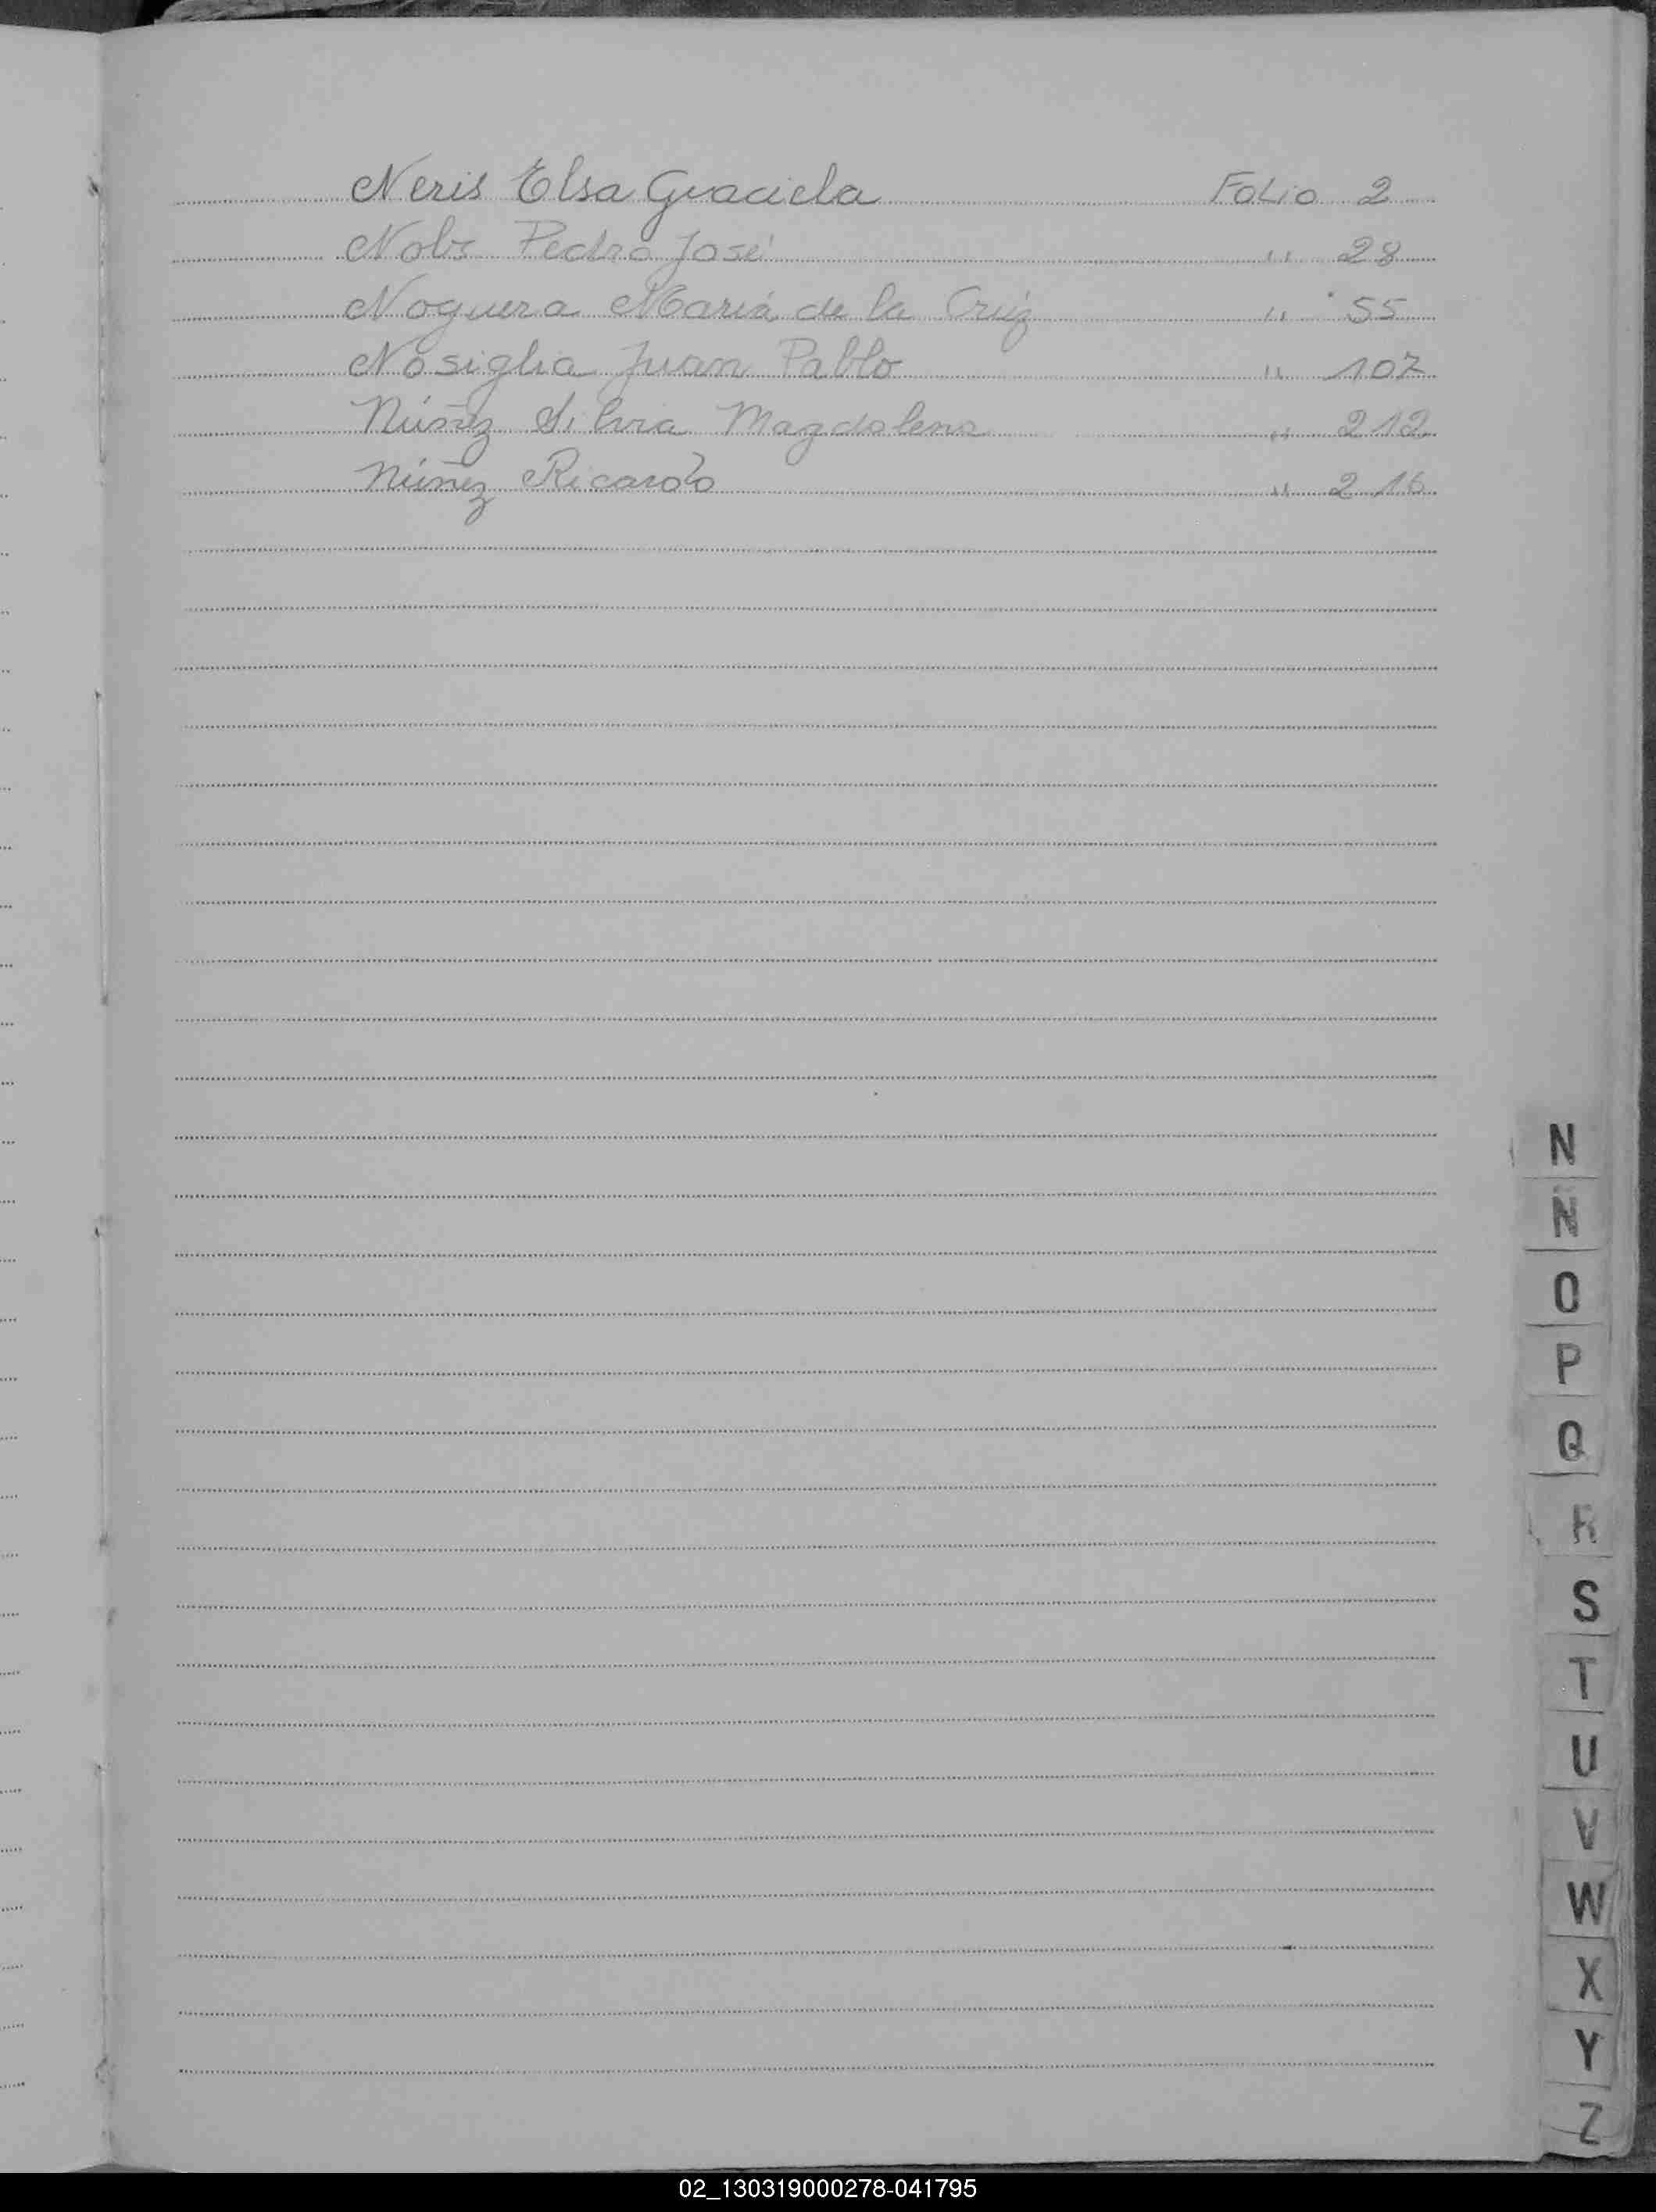 Neris Elsa Graciela Folio 2
Nobs Pedro José " 28
Noguera María de la Cruz " 55
Nosiglia Juan Pablo " 107
Núñez Silvia Magdalena " 212
Núñez Ricardo " 216
N
Ñ
O
P
Q
R
S
T
U
V
W
X
Y
Z
02_130319000278-041795